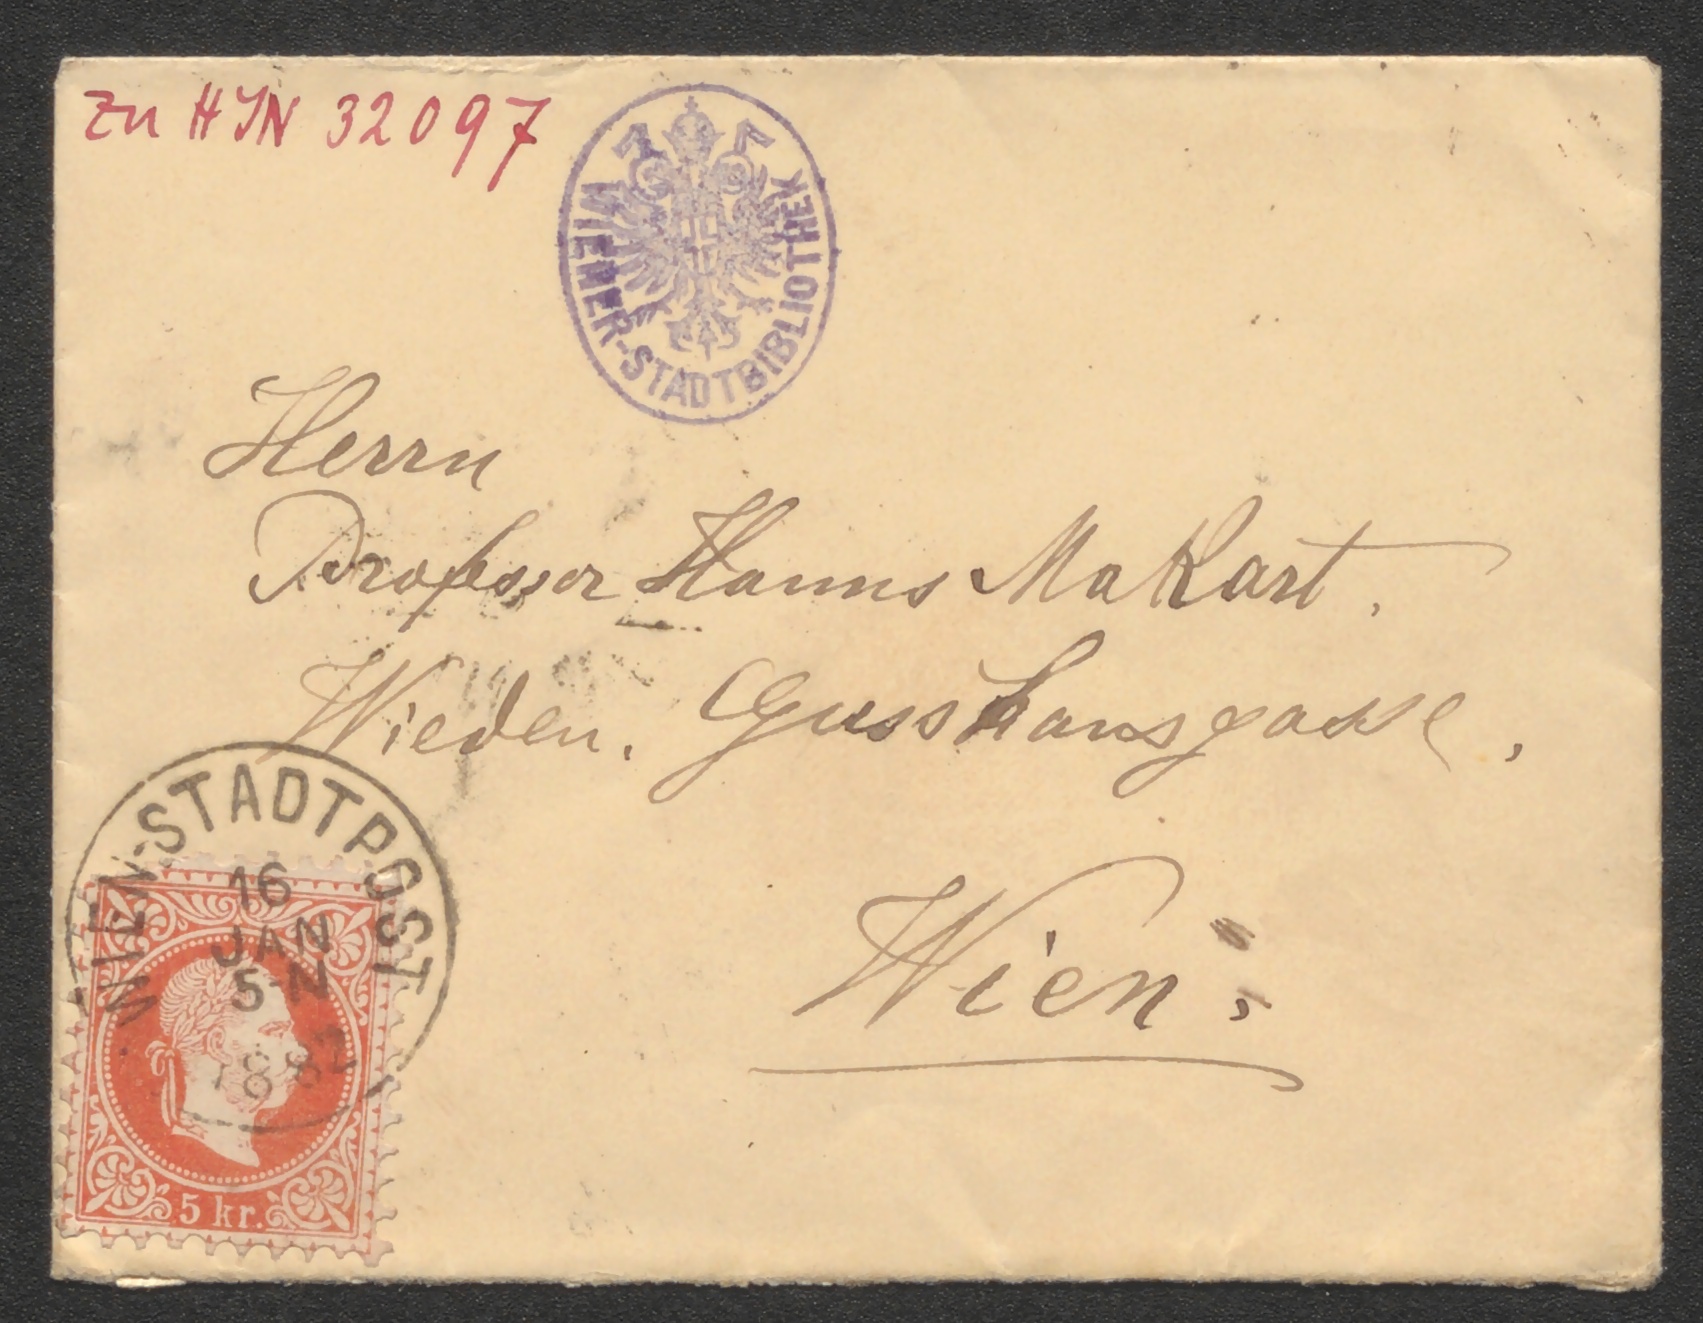 zu HIN 32097
WIENER-STADTBIBLIOTHEK
Herrn
Professor Hanns Makart.
Wieden. Gusshausgasse.
Wien.
WIEN-STADTPOST
16
JAN
5-N
1882
5 kr.